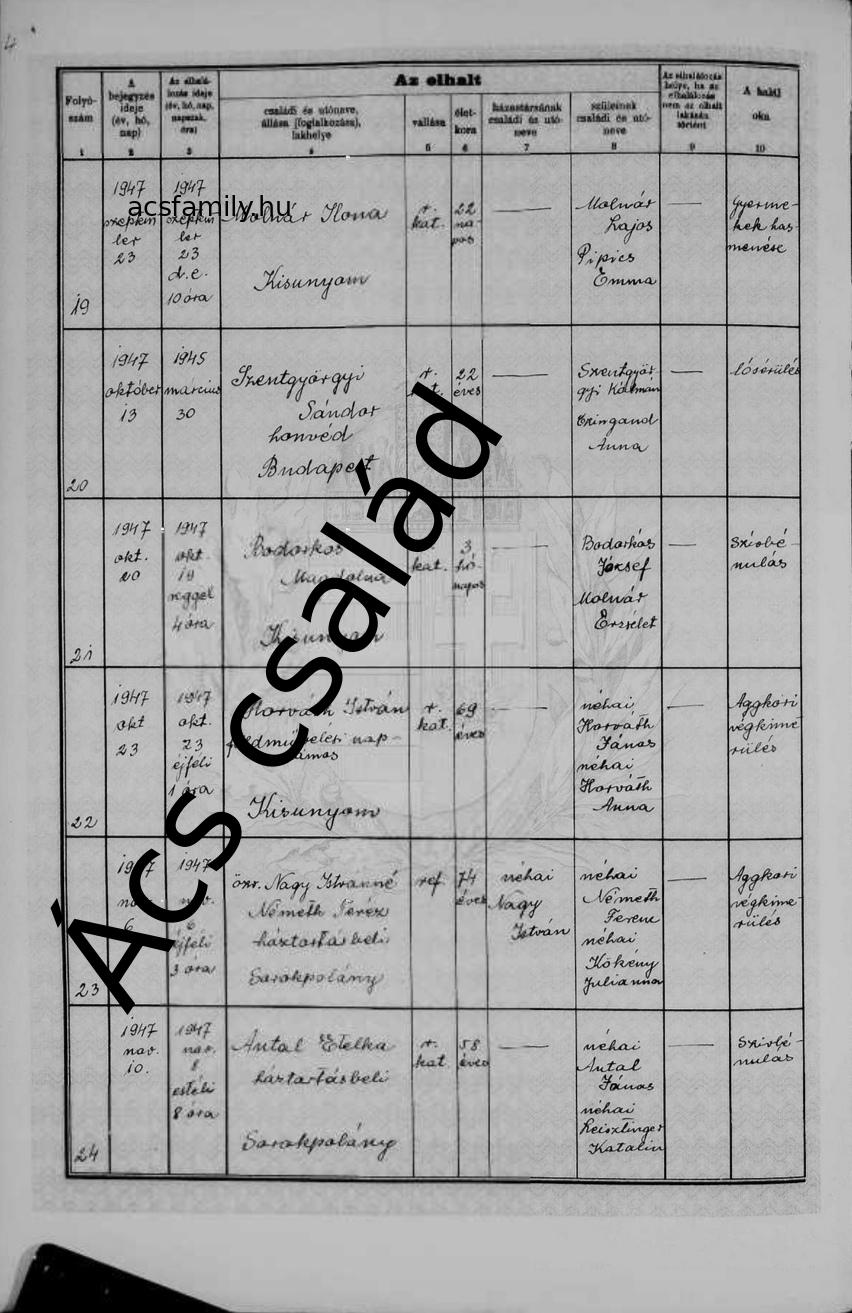 Az elhalt
Folyó-
szám
A
bejegyzés
ideje
(év, hó,
nap)
Az elhalá-
lozás ideje
(év, hó, nap,
napszak,
óra)
családi és utóneve,
állása (foglalkozása),
lakhelye
vallása
élet-
kora
házastársának
családi és utó-
neve
szüleinek
családi és utó-
neve
Az elhalálozás
helye, ha az
elhalálozás
nem az elhalt
lakásán
történt
A halál
oka
1 2 3 4 5 6 7 8 9 10
acsfamily.hu
Ács család
19
1947
szeptem
ber
23
1947
szeptem
ber
23
d.e.
10 óra
Molnár Ilona
Kisunyom
r.
kat.
22
na-
pos
Molnár
Lajos
Pipics
Emma
Gyerme-
kek has-
menése
20
1947
október
13
1945
március
30
Szentgyörgyi
Sándor
honvéd
Budapest
r.
22
éves
Szentgyör
gyi Kálmán
Anna
lősérülés
21
1947
okt.
20
1947
okt.
19
reggel
4 óra
Bodorkós
Magdolna
Kisunyom
kat.
3
hó-
napos
Bodorkós
József
Molnár
Erzsébet
Szívbé-
nulás
22
1947
okt
23
1947
okt.
23
éjféli
1 óra
Horváth István
földművelési nap-
számos
Kisunyom
r.
kat.
69
éves
néhai
Horváth
János
néhai
Horváth
Anna
Aggkori
végkime-
rülés
23
1947
nov.
6
1947
nov.
6
éjféli
3 óra
özv. Nagy Istvánné
Németh Teréz
háztartásbeli
Sorokpolány
ref.
74
éves
néhai
Nagy
István
néhai
Németh
Ferenc
néhai
Kökény
Julianna
Aggkori
végkime-
rülés
24
1947
nov.
10.
1947
nov.
8
estéli
8 óra
Antal Etelka
háztartásbeli
Sorokpolány
r.
kat.
58
éves
néhai
Antal
János
néhai
Reisztinger
Katalin
Szívbé-
nulás